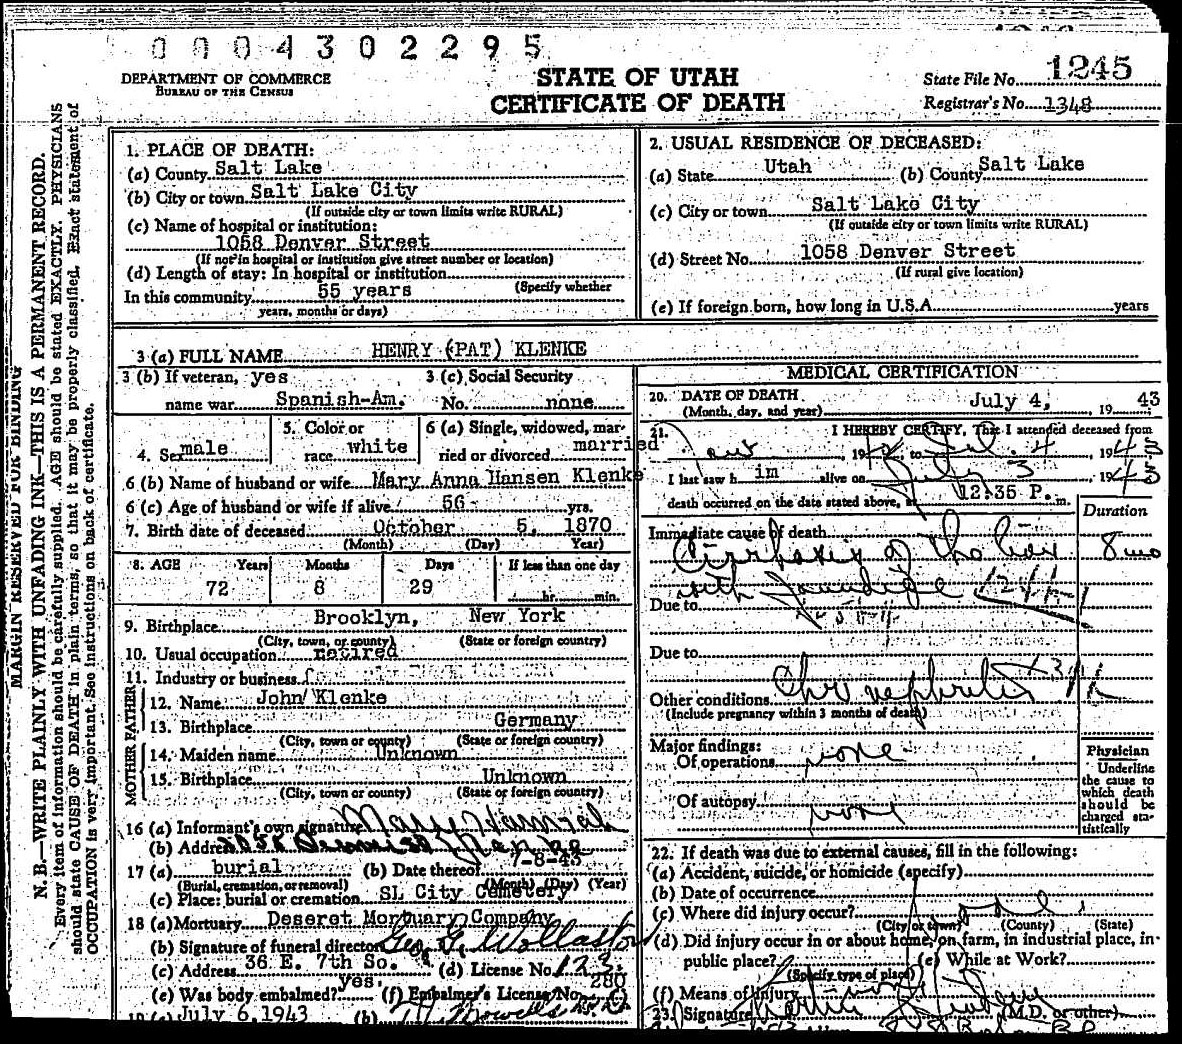 0 0 0 4 3 0 2 2 9 5
DEPARTMENT OF COMMERCE
BUREAU OF THE CENSUS
STATE OF UTAH
CERTIFICATE OF DEATH
State File No. 1245
Registrar's No. 1348
MARGIN RESERVED FOR BINDING
N. B.—WRITE PLAINLY WITH UNFADING INK—THIS IS A PERMANENT RECORD.
Every item of information should be carefully supplied. AGE should be stated EXACTLY. PHYSICIANS
should state CAUSE OF DEATH in plain terms, so that it may be properly classified. Exact statement of
OCCUPATION is very important. See instructions on back of certificate.
1. PLACE OF DEATH:
(a) County Salt Lake
(b) City or town Salt Lake City
(If outside city or town limits write RURAL)
(c) Name of hospital or institution:
1058 Denver Street
(If not in hospital or institution give street number or location)
(d) Length of stay: In hospital or institution
(Specify whether
In this community 55 years
years, months or days)
2. USUAL RESIDENCE OF DECEASED:
(a) State Utah (b) County Salt Lake
(c) City or town Salt Lake City
(If outside city or town limits write RURAL)
(d) Street No. 1058 Denver Street
(If rural give location)
(e) If foreign born, how long in U.S.A. years
3 (a) FULL NAME HENRY (PAT) KLENKE
3 (b) If veteran, yes
name war Spanish-Am.
3 (c) Social Security
No. none
4. Sex male
5. Color or
race white
6 (a) Single, widowed, mar-
ried or divorced married
6 (b) Name of husband or wife Mary Anna Hansen Klenke
6 (c) Age of husband or wife if alive 56 yrs.
7. Birth date of deceased October 5, 1870
(Month) (Day) Year)
8. AGE Years Months Days If less than one day
72 8 29 hr. min.
9. Birthplace Brooklyn, New York
(City, town, or county) (State or foreign country)
10. Usual occupation retired
11. Industry or business
FATHER
12. Name John Klenke
13. Birthplace Germany
(City, town or county) (State or foreign country)
MOTHER
14. Maiden name Unknown
15. Birthplace Unknown
(City, town or county) (State or foreign country)
16 (a) Informant's own signature Mary
(b) Address
17 (a) burial (b) Date thereof 7-8-43
(Burial, cremation, or removal) (Month) (Day) (Year)
(c) Place: burial or cremation SL City Cemetery
18 (a) Mortuary Deseret Mortuary Company
(b) Signature of funeral director Geo. G. Wollaston
(c) Address 36 E. 7th So. (d) License No. 123
(e) Was body embalmed? yes (f) Embalmer's License No. 280
July 6, 1943 (b)
MEDICAL CERTIFICATION
20. DATE OF DEATH
(Month, day, and year) July 4, 19 43
21. I HEREBY CERTIFY, That I attended deceased from
19 to Jul. 4, 1943
I last saw h im alive on July 3 1943
death occurred on the date stated above, at 12:35 P. m.
Duration
Immediate cause of death
Cirrhosis of the liver 8 mo
with jaundice
Due to
Due to
Other conditions Chr nephritis
(Include pregnancy within 3 months of death)
Major findings:
Of operations none
Of autopsy none
Physician
Underline
the cause to
which death
should be
charged sta-
tistically
22. If death was due to external causes, fill in the following:
(a) Accident, suicide, or homicide (specify)
(b) Date of occurrence
(c) Where did injury occur?
(City or town) (County) (State)
(d) Did injury occur in or about home, on farm, in industrial place, in-
public place? (e) While at Work?
(Specify type of place)
(f) Means of injury
23. Signature (M.D. or other)